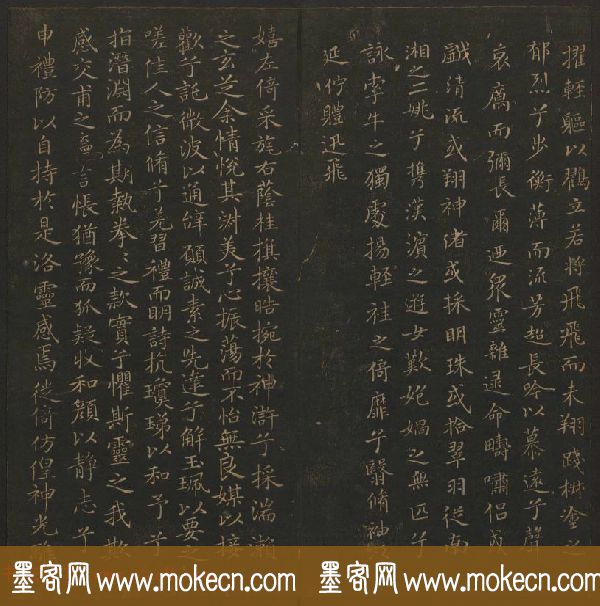 擢輕軀以鶴立若將飛飛而未翔踐椒塗之
郁烈兮步衡薄而流芳超長吟以慕遠兮聲
哀厲而彌長爾迺眾靈雜遝命疇嘯侶或
戲清流或翔神渚或採明珠或拾翠羽從南
湘之二姚兮攜漢濱之遊女歎匏媧之無匹兮
詠牽牛之獨處揚輕袿之倚靡兮翳脩袖以
延佇體迅飛
嬉左倚采旄右蔭桂旗攘皓捥於神滸兮採湍瀨
之玄芝余情悅其淑美兮心振蕩而不怡無良媒以接
歡兮託微波以通辭願誠素之先達兮解玉珮以要之
嗟佳人之信脩兮羌習禮而明詩抗瓊珶以和予兮
指潛淵而為期執拳〻之款實兮懼斯靈之我欺
感交甫之棄言悵猶豫而狐疑收和顏以靜志兮
申禮防以自持於是洛靈感焉徙倚仿偟神光離
墨客网 www.mokecn.com 墨客网 www.mokecn.com